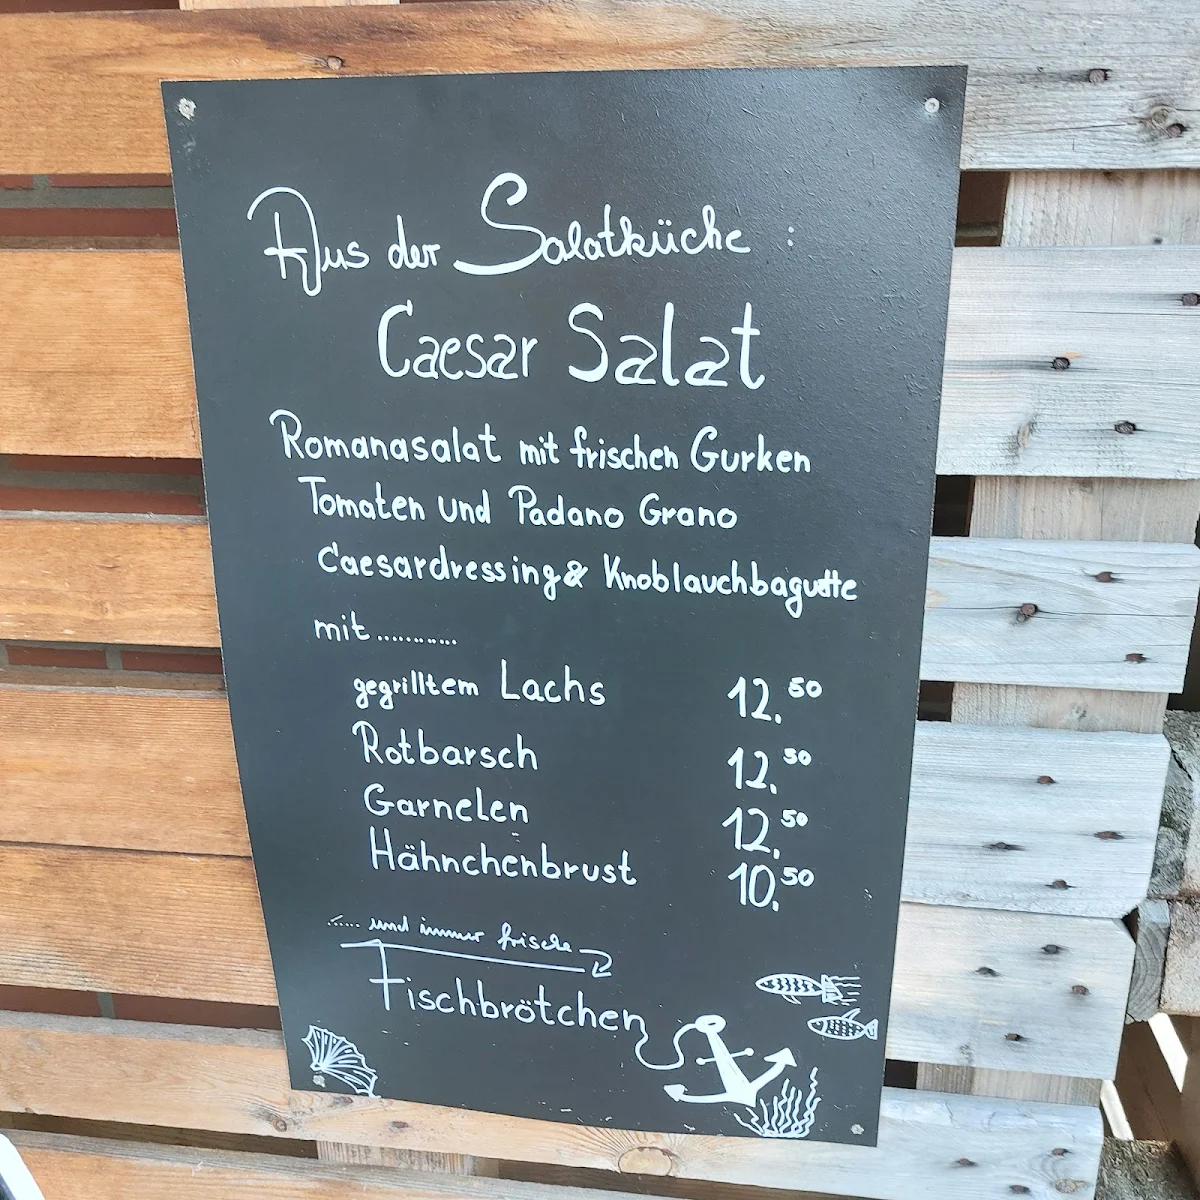 Aus der Salatküche :
Caesar Salat
Romanasalat mit frischen Gurken
Tomaten und Padano Grano
Caesardressing & Knoblauchbaguette
mit...........
gegrilltem Lachs 12.50
Rotbarsch 12.50
Garnelen 12.50
Hähnchenbrust 10.50
..... und immer frische
Fischbrötchen